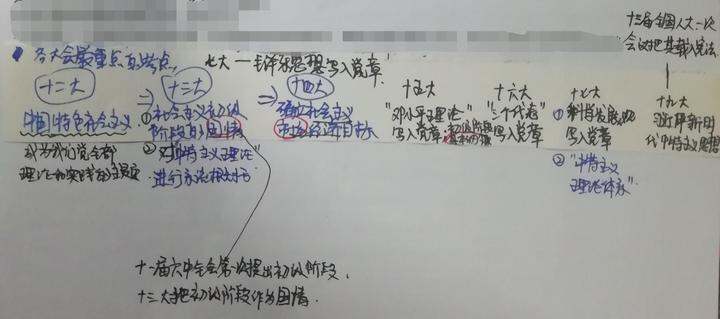 十三届全国人大一次
会议把其载入宪法
各大会最重点的考点
七大一毛泽东思想写入党章
十二大
中国特色社会主义
成为我们党全部
理论和实践的主题
⇒
十三大
①社会主义初级
阶段的国情
②对"中特主义理论"
进行
⇒
十四大
确立社会主义
市场经济目标
十五大
"邓小平理论"
写入党章
十六大
"三个代表"
写入党章
十七大
①科学发展观
写入党章
②"中特主义
理论体系"
十九大
习近平新时
代中特主义思想
十一届六中全会第一次提出初级阶段,
十三大把初级阶段作为国情.